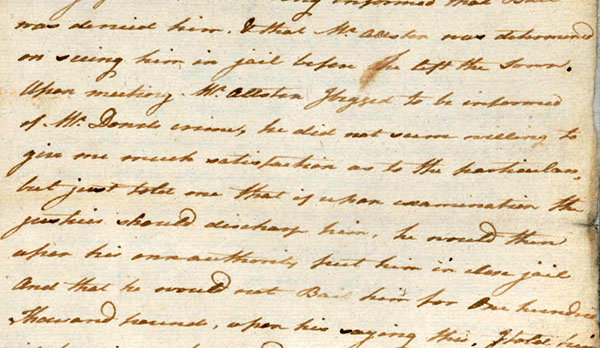 informed that Bail
was denied him. & that Mr. Allston was determind
on seeing him in jail before he left the Town.
Upon meeting Mr. Allston I begged to be informed
of Mr. Dond's crime, he did not seem willing to
give me much satisfaction as to the particulars,
but just told me that if upon examination the
justices should discharge him, he would then
upon his own authority put him in close jail
And that he would not Bail him for One hundred
Thousand pound, upon his saying this, I told him